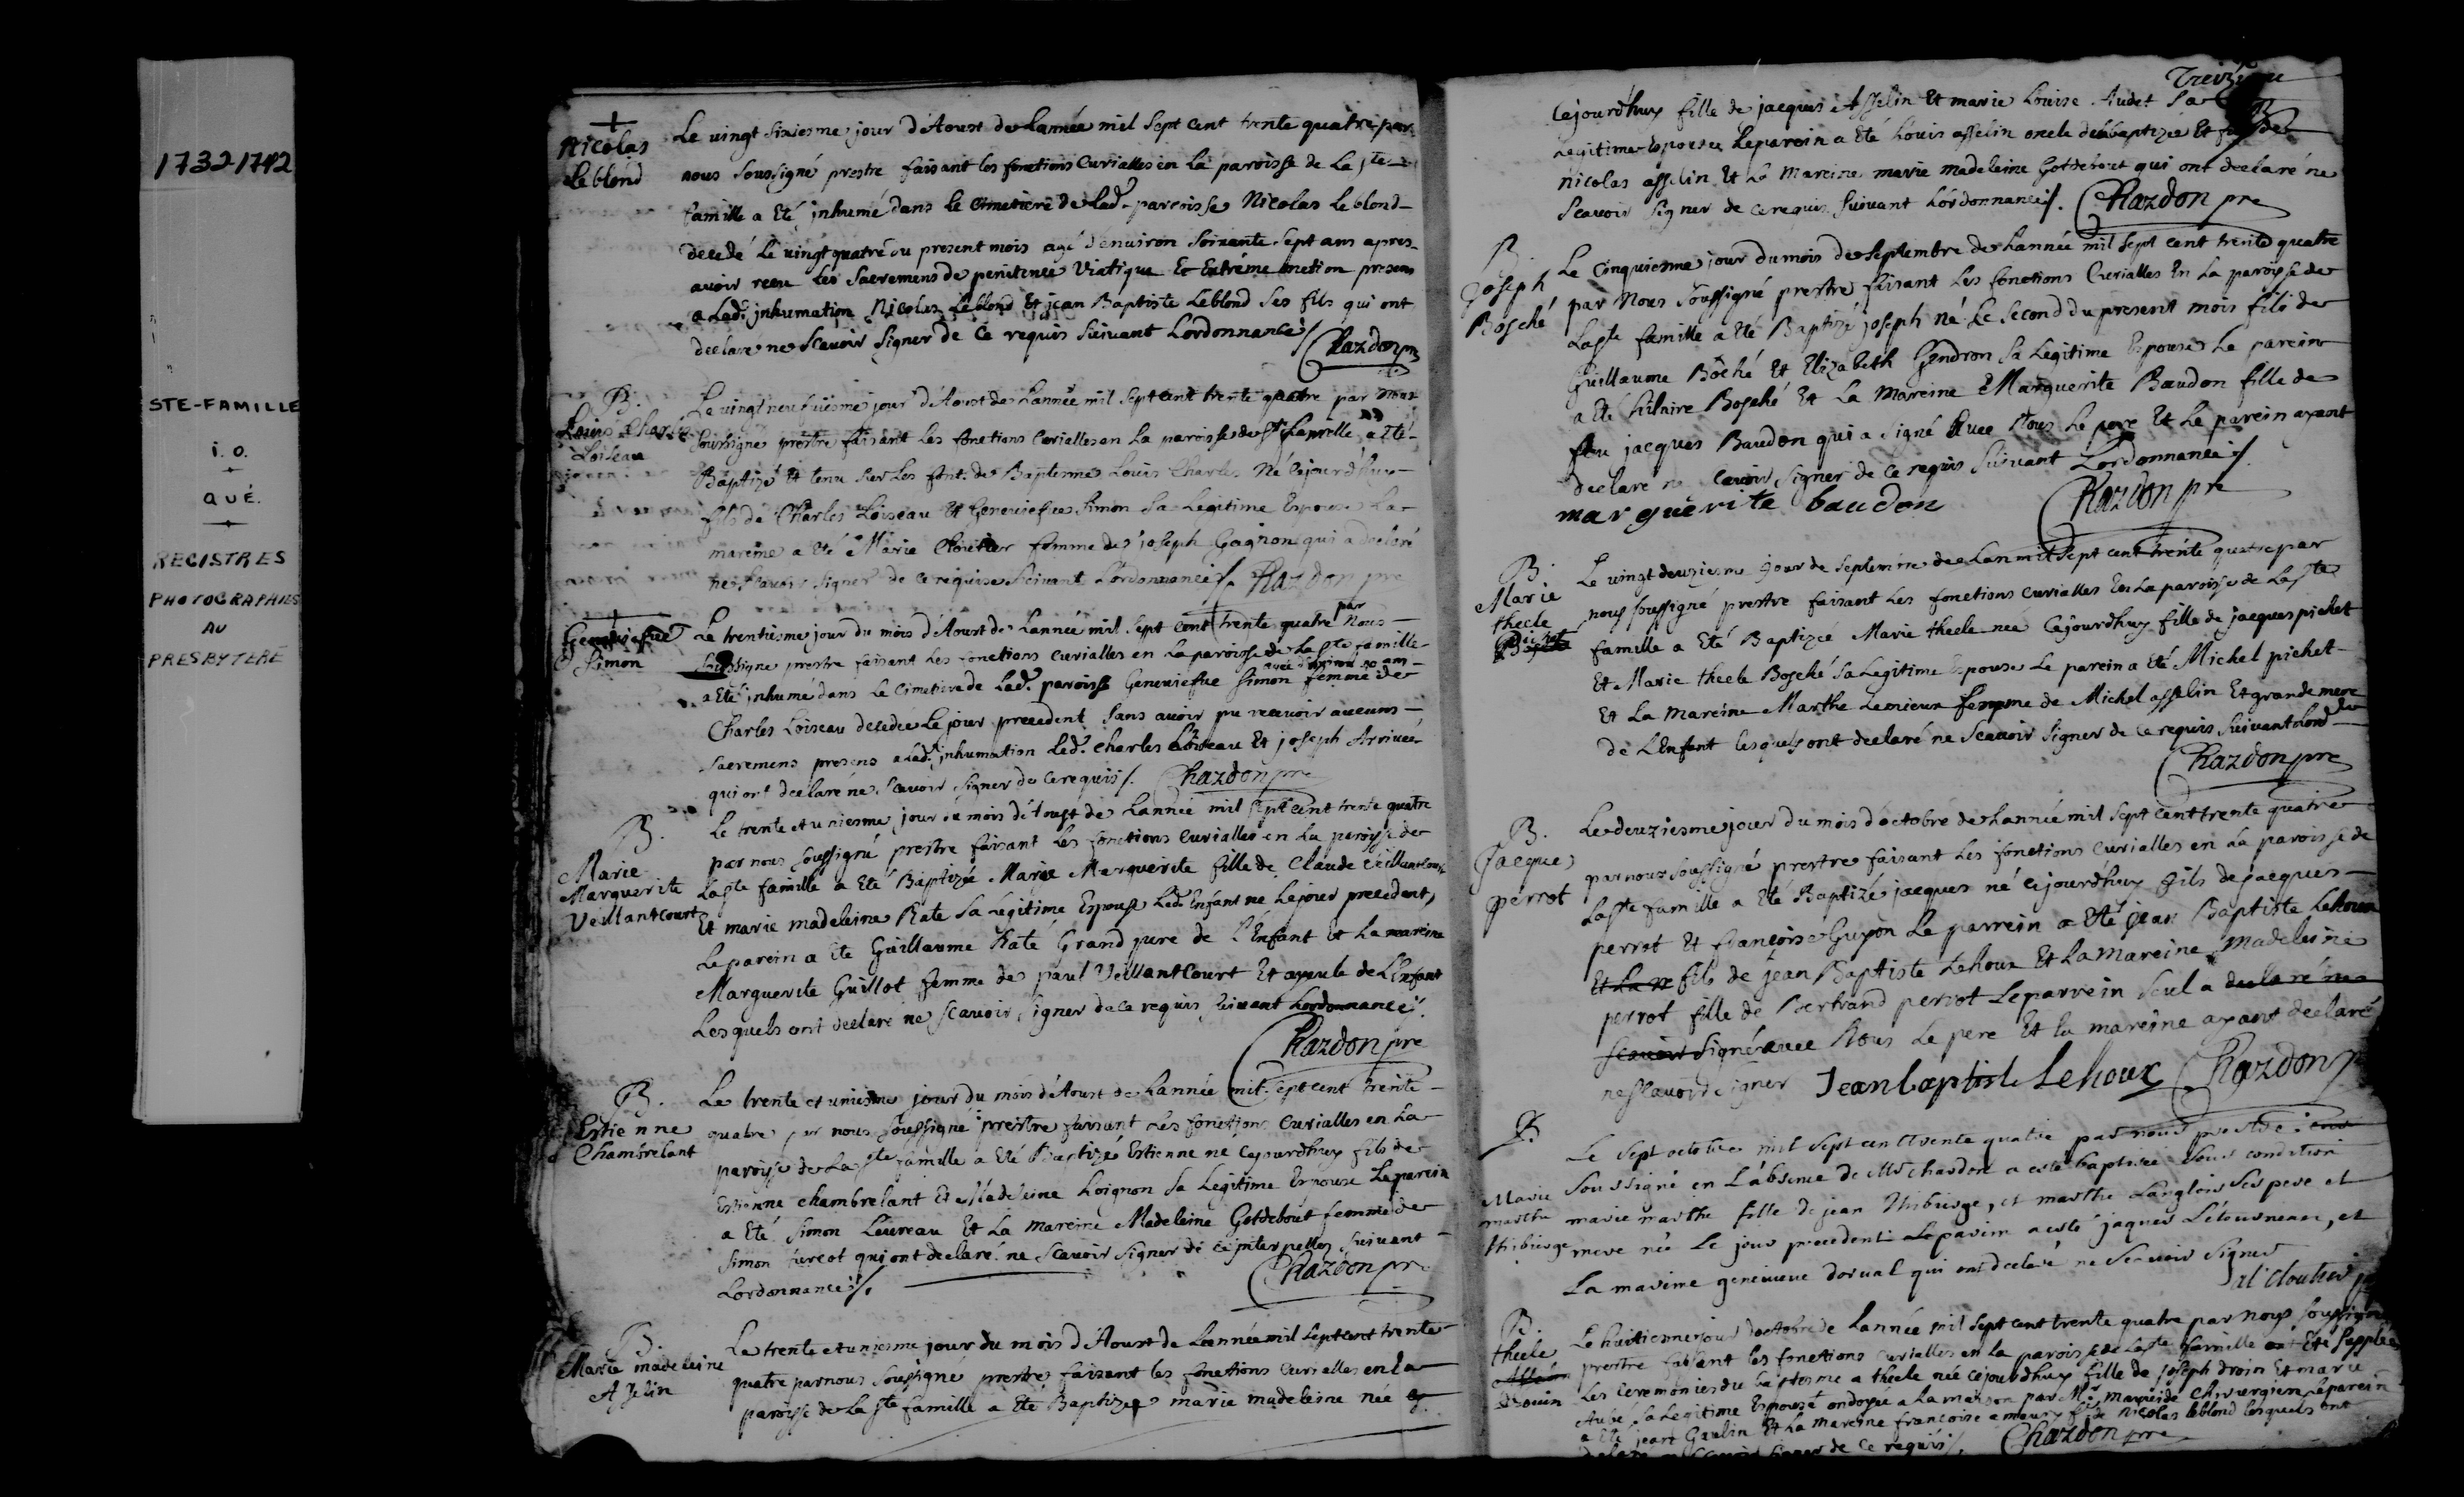 1732-1742
STE-FAMILLE
i. o.
QUÉ.
REGISTRES
PHOTOGRAPHIÉS
AU
PRESBYTERE
+
Nicolas
Leblond
Le vingt sixiesme jour d'Aoust de Lannée mil sept cent trente quatre par
nous soussigné prestre faisant les fonctions Curialles en la paroisse de La ste
famille a Eté inhumé dans le Cimetiere de lad. paroisse Nicolas Leblond
decedé le vingt quatre du present mois agé d'environ soixante sept ans apres
avoir receu les sacremens de penitence Viatique Et Extréme onction presens
a Lad. inhumation Nicolas Leblond Et jean Baptiste Leblond ses fils qui ont
declare ne scavoir signer de ce requis suivant Lordonnance /.
Chardon pre
B.
Louis Charles
Loiseau
Le vingt neufviesme jour d'Aoust de Lannée mil sept cent trente quatre par nous
soussigné prestre faisant les fonctions Curialles en la paroisse de a Eté
Baptizé Et tenu sur les font. de Baptesme Louis Charles Né Cejourd'huy
fils de Charles Loiseau Et Geneviefve Simon sa Legitime Epouse La
mareine a Eté Marie Cloutier femme de joseph Gagnon qui a declaré
ne scavoir signer de ce requise suivant Lordonnance /. Chardon pre
+
Geneviefve
Simon
Le trentiesme jour du mois d'Aoust de Lannée mil sept cent trente quatre par Nous
soussigne prestre faisant les fonctions curialles en la paroisse de La ste famille
agée d'environ 20 ans
a Eté inhumé dans le Cimetiere de Lad. paroisse Geneviefve Simon femme de
Charles Loiseau decedée Le jour precedent sans avoir pu recevoir aucuns
sacremens presens a Lad. inhumation Led. Charles Loiseau Et joseph Arrivée
qui ont declaré ne scavoir signer de ce requis /. Chardon pre
B.
Marie
Marguerite
Veillantcourt
Le trente et uniesme jour du mois d'Aoust de Lannée mil sept cent trente quatre
par nous soussigné prestre faisant les fonctions curialles en la paroisse de
La ste famille a Eté Baptizée Marie Marguerite fille de Claude Veillantcourt
Et marie madeleine Rate sa Legitime Espouse Led. Enfant ne Le jour precedent,
Le parein a Ete Guillaume Raté Grand pere de L'Enfant et La mareine
Marguerite Guillot femme de paul Veillantcourt Et ayeule de L'Enfant
Lesquels ont declare ne scavoir signer de ce requis suivant Lordonnance /.
Chardon pre
B.
Estienne
Chambrelant
Le trente et uniesme jour du mois d'Aoust de Lannée mil sept cent trente
quatre par nous soussigné prestre faisant les fonctions Curialles en La
paroisse de La ste famille a Eté Baptizé Estienne né Cejourdhuy fils de
Estienne chambrelant Et Madeleine hoignon sa Legitime Espouse Le parein
a Eté Simon Levreau Et La mareine Madeleine Gotdebout femme de
Simon turcot qui ont declaré ne scavoir signer de ce interpelles suivant
Lordonnance /.
Chardon pre
B.
Marie madeleine
Asselin
Le trente et uniesme jour du mois d'Aoust de Lannée mil sept cent trente
quatre par nous soussigné prestre faisant les fonctions Curialles en la
paroisse de La ste famille a Eté Baptizée marie madeleine née
Treizieme
Cejourdhuy fille de jacques Asselin Et marie Louise Audet sa
Legitime Espouse Le parein a Eté Louis asselin oncle de la baptizée Et fils de
nicolas asselin Et La Mareine marie madeleine Gotdebout qui ont declaré ne
scavoir signer de ce requis suivant Lordonnance /. Chardon pre
B.
Joseph
Bosché
Le Cinquiesme jour du mois de septembre de Lannée mil sept cent trente quatre
par Nous soussigné prestre faisant les fonctions Curialles En La paroisse de
La ste famille a Eté Baptizé joseph né Le second du present mois fils de
Guillaume Boché Et Elizabeth Gendron sa Legitime Epouse Le parein
a Eté hilaire Bosché Et La Mareine Marguerite Baudon fille de
feu jacques Baudon qui a signé avec Nous Le pere Et Le parein ayant
declaré ne scavoir signer de ce requis suivant Lordonnance /.
marguerite baudon
Chardon pre
B.
Marie
thecle
Pichet
Le vingt deuziesme jour de septembre de Lan mil sept cent trente quatre par
nous soussigné prestre faisant les fonctions curialles En La paroisse de La ste
famille a Eté Baptizée Marie thecle née Cejourdhuy fille de jacques pichet
Et Marie thecle Bosché sa Legitime Epouse Le parein a Eté Michel pichet
Et La Mareine Marthe Lemieux femme de Michel asselin Et grande mere
de L'Enfant lesquels ont declaré ne scavoir signer de ce requis suivant Lord
Chardon pre
B.
Jacques
perrot
Le deuziesme jour du mois d'octobre de Lannée mil sept cent trente quatre
par nous soussigné prestre faisant les fonctions curialles en La paroisse de
La ste famille a Eté Baptizé jacques né Cejourdhuy fils de jacques
perrot Et francoise Guyon Le parrein a Eté jean Baptiste Lehoux
Et La m fils de jean Baptiste Lehoux Et La mareine Madeleine
perrot fille de Bertrand perrot Le parrein seul a declaré ne
scavoir signé avec Nous Le pere Et la mareine ayant declaré
ne scavoir signer Jean baptiste Lehoux Chardon
B.
Marie
marthe
thibierge
Le sept octobre mil sept cent trente quatre par nous prestre
soussigné en L'absence de Mr chardon a esté baptisée sous condition
marie marthe fille de jean thibierge, et marthe Langlois ses pere et
mere née Le jour precedent Le parein a esté jaques Létourneau, et
La mareine genevieve dorval qui ont declaré ne scavoir signer
cloutier
B.
thecle
drouin
Le huitiesme jour d'octobre de Lannée mil sept cent trente quatre par nous soussigné
prestre faisant les fonctions curialles en la paroisse de La ste famille ont Eté supplée
Les ceremonies du baptesme a thecle née cejourdhuy fille de joseph droin Et marie
Aubé sa Legitime Espouse ondoyée a La maison par Mr chirurgien Le parein
a Eté jean Gaulin Et La mareine francoise amaury fe de nicolas leblond lesquels ont
declare ne scavoir signer de ce requis /. Chardon pre